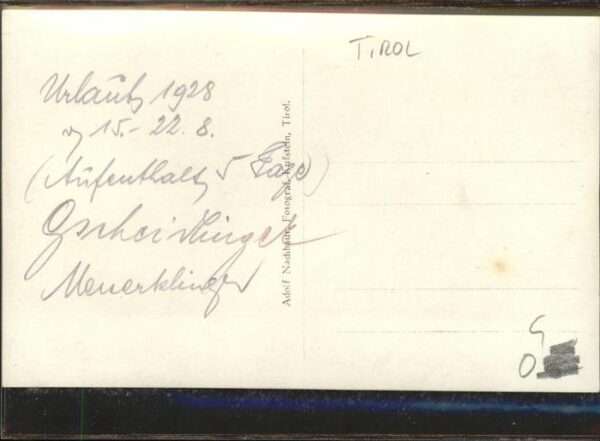 TIROL
Urlaub 1928
v 15.-22. 8.
(Aufenthalt 5 Tage)
Gscheidlinger
Adolf Nachbaur, Fotograf, Kufstein, Tirol.